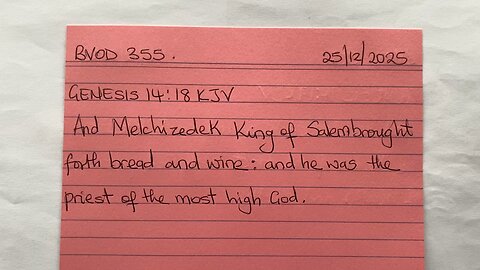 BVOD 355. 25/12/2025
GENESIS 14:18 KJV
And Melchizedek King of Salem brought
forth bread and wine: and he was the
priest of the most high God.